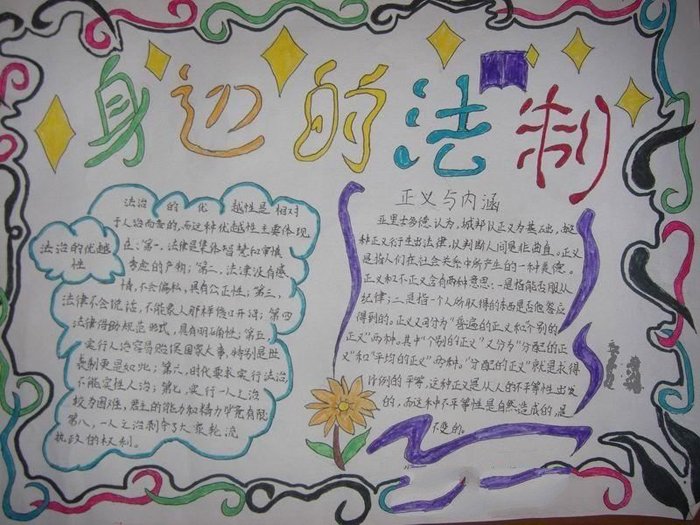 身边的法制
法治的优越
性
法治的优越性是相对
于人治而言的,而这种优越性主要体现
在:第一,法律是集体智慧和审慎
考虑的产物;第二,法律没有感
情,不会偏私,具有公正性;第三,
法律不会说话,不能象人那样信口开河;第四
法律借助规范形式,具有明确性;第五,
实行人治容易贻误国家大事,特别是世
袭制更是如此;第六,时代要求实行法治
不能实行人治;第七,实行一人之治
较为困难,君主的能力和精力毕竟有限
第八,一人之治剥夺了大家轮流
执政的权利。
正义与内涵
亚里士多德认为,城邦以正义为基础,由
种正义衍生出法律,以判断人间是非曲直。正义
是指人们在社会关系中所产生的一种美德。
正义和不正义含有两种意思:一是指能否服从
纪律;二是指一个人所取得的东西是否他答应
得到的。正义又可分为"普遍的正义和个别的
正义"两种。其中"个别的正义"又分为"分配的正
义"和"平均的正义"两种。"分配的正义"就是求得
比例的平等,这种正义是从人的不平等性出发
的,而这种不平等性是自然造成的,是
不变的。